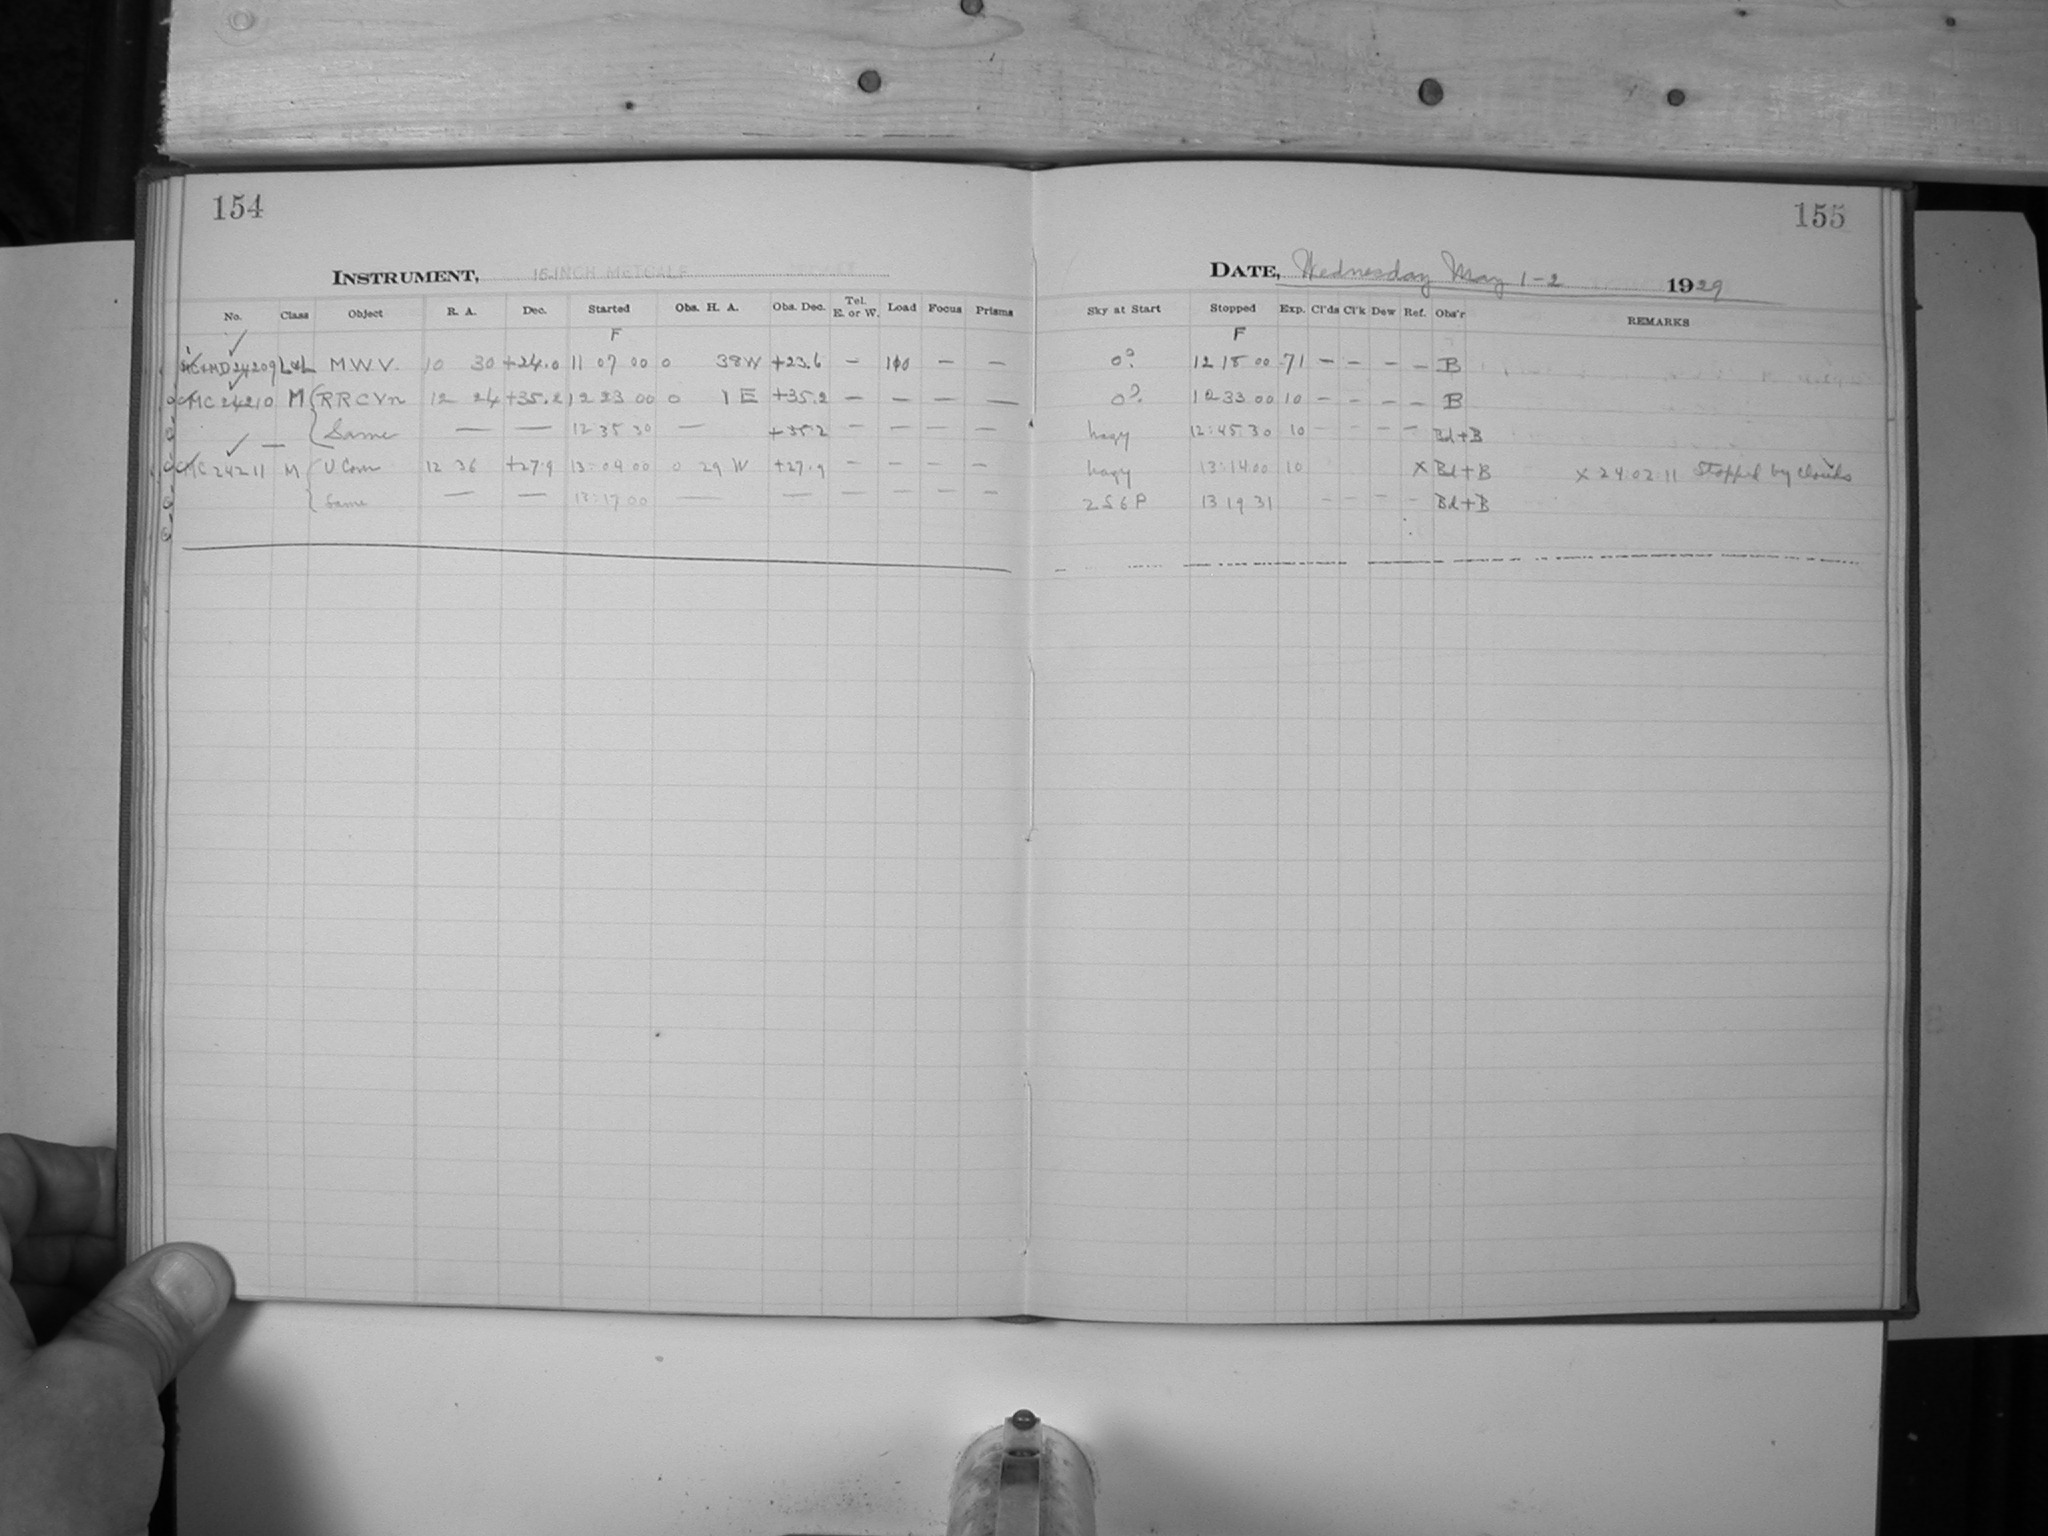 154
155
INSTRUMENT, 16-INCH METCALF
DATE, Wednesday May 1-2 1929
No. Class Object R. A. Dec. Started Obs. H. A. Obs. Dec. Tel. E. or W. Load Focus Prisms Sky at Start Stopped Exp. Cl'ds Cl'k Dew Ref. Obs'r REMARKS
F F
MC+MD24209 L M.W.V. 10 30 +24.0 11 07 00 0 38W +23.6 — 100 — — 0? 12 18 00 71 — — — — B
MC 24210 M RRCVn 12 24 +35.2 12 23 00 0 1 E +35.2 — — — — 0? 12 33 00 10 — — — — B
— Same — — 12 35 30 — +35.2 — — — — hazy 12:45.30 10 — — — — Bd+B
MC 24211 M U Com 12 36 +27.9 13:04 00 0 29 W +27.9 — — — — hazy 13:14 00 10 X Bd+B X 24.02.11 Stopped by clouds
Same — — 13:17 00 — — — — — — 2S6P 13 19 31 — — — — Bd+B